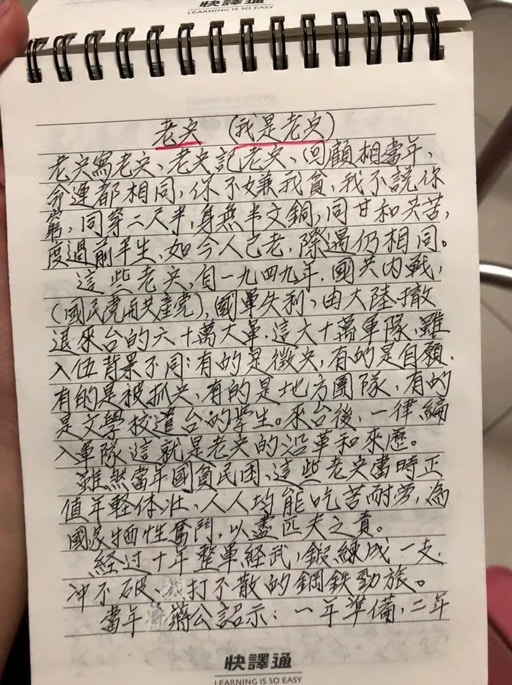 快譯通
LEARNING IS SO EASY
老兵 (我是老兵)
老兵寫老兵、老兵記老兵、回顧相當年、
命運都相同,你不嫌我貧,我不說你
窮,同穿二尺半,身無半文銅,同甘和共苦,
度過前半生,如今人已老,際遇仍相同。
這些老兵,自一九四九年,國共內戰,
(國民党而共產党),國軍失利,由大陸撤
退來台的六十萬大軍,這六十萬軍隊,雖
入伍背景不同:有的是徵兵,有的是自願,
有的是被抓兵,有的是地方團隊,有的
是文學校遣台的學生。來台後,一律編
入軍隊這就是老兵的沿革和來歷。
雖然當年國貧民困,這些老兵當時正
值年輕体壯,人人均能吃苦耐勞,為
國家牺牲奮鬥,以盡匹夫之責。
經过十年整軍經武,鍛練成一支,
冲不破、打不散的鋼鉄勁旅。
當年蔣公詔示:一年準備,二年
快譯通
LEARNING IS SO EASY